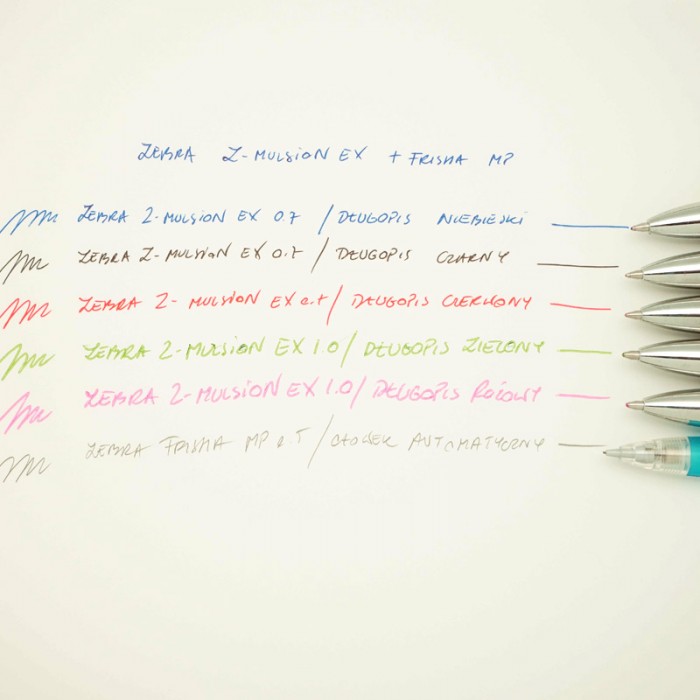 ZEBRA Z-MULSION EX + FRISHA MP
ZEBRA Z-MULSION EX 0.7 / DŁUGOPIS NIEBIESKI
ZEBRA Z-MULSION EX 0.7 / DŁUGOPIS CZARNY
ZEBRA Z-MULSION EX 0.7 / DŁUGOPIS CZERWONY
ZEBRA Z-MULSION EX 1.0 / DŁUGOPIS ZIELONY
ZEBRA Z-MULSION EX 1.0 / DŁUGOPIS RÓŻOWY
ZEBRA FRISHA MP 0.5 / OŁÓWEK AUTOMATYCZNY